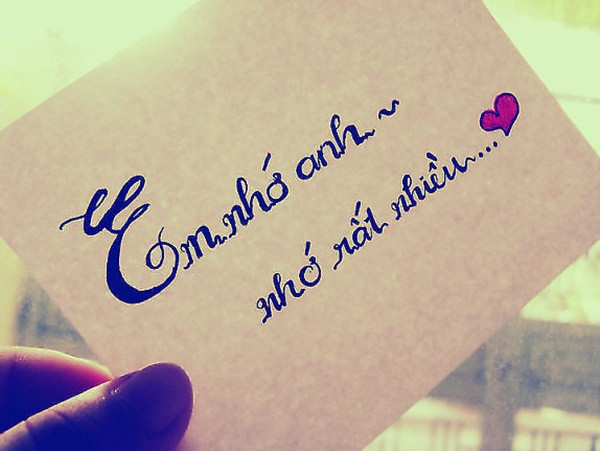 Em nhớ anh ~
nhớ rất nhiều...